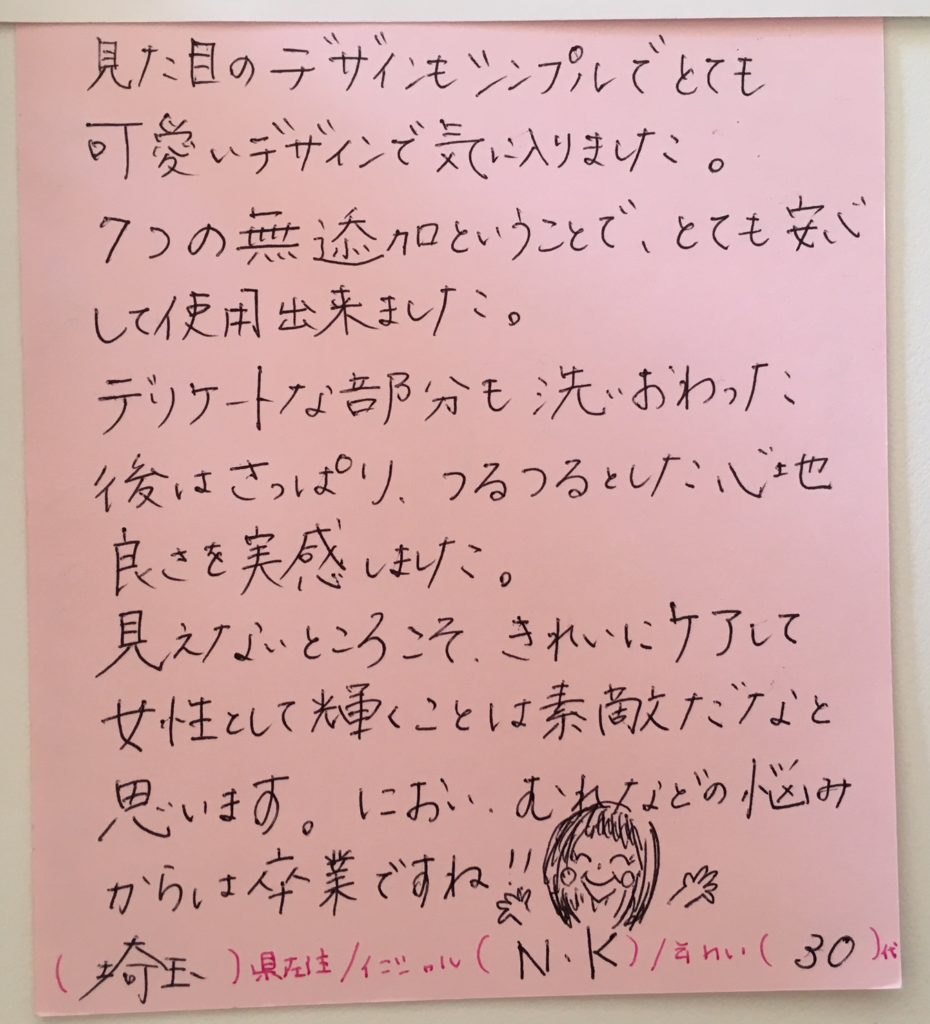 見た目のデザインもシンプルでとても
可愛いデザインで気に入りました。
7つの無添加ということで、とても安心
して使用出来ました。
デリケートな部分も洗いおわった
後はさっぱり、つるつるとした心地
良さを実感しました。
見えないところこそ、きれいにケアして
女性として輝くことは素敵だなと
思います。におい、むれなどの悩み
からは卒業ですね!!
(埼玉)県在住/イニシャル(N.K)/年れい(30)代